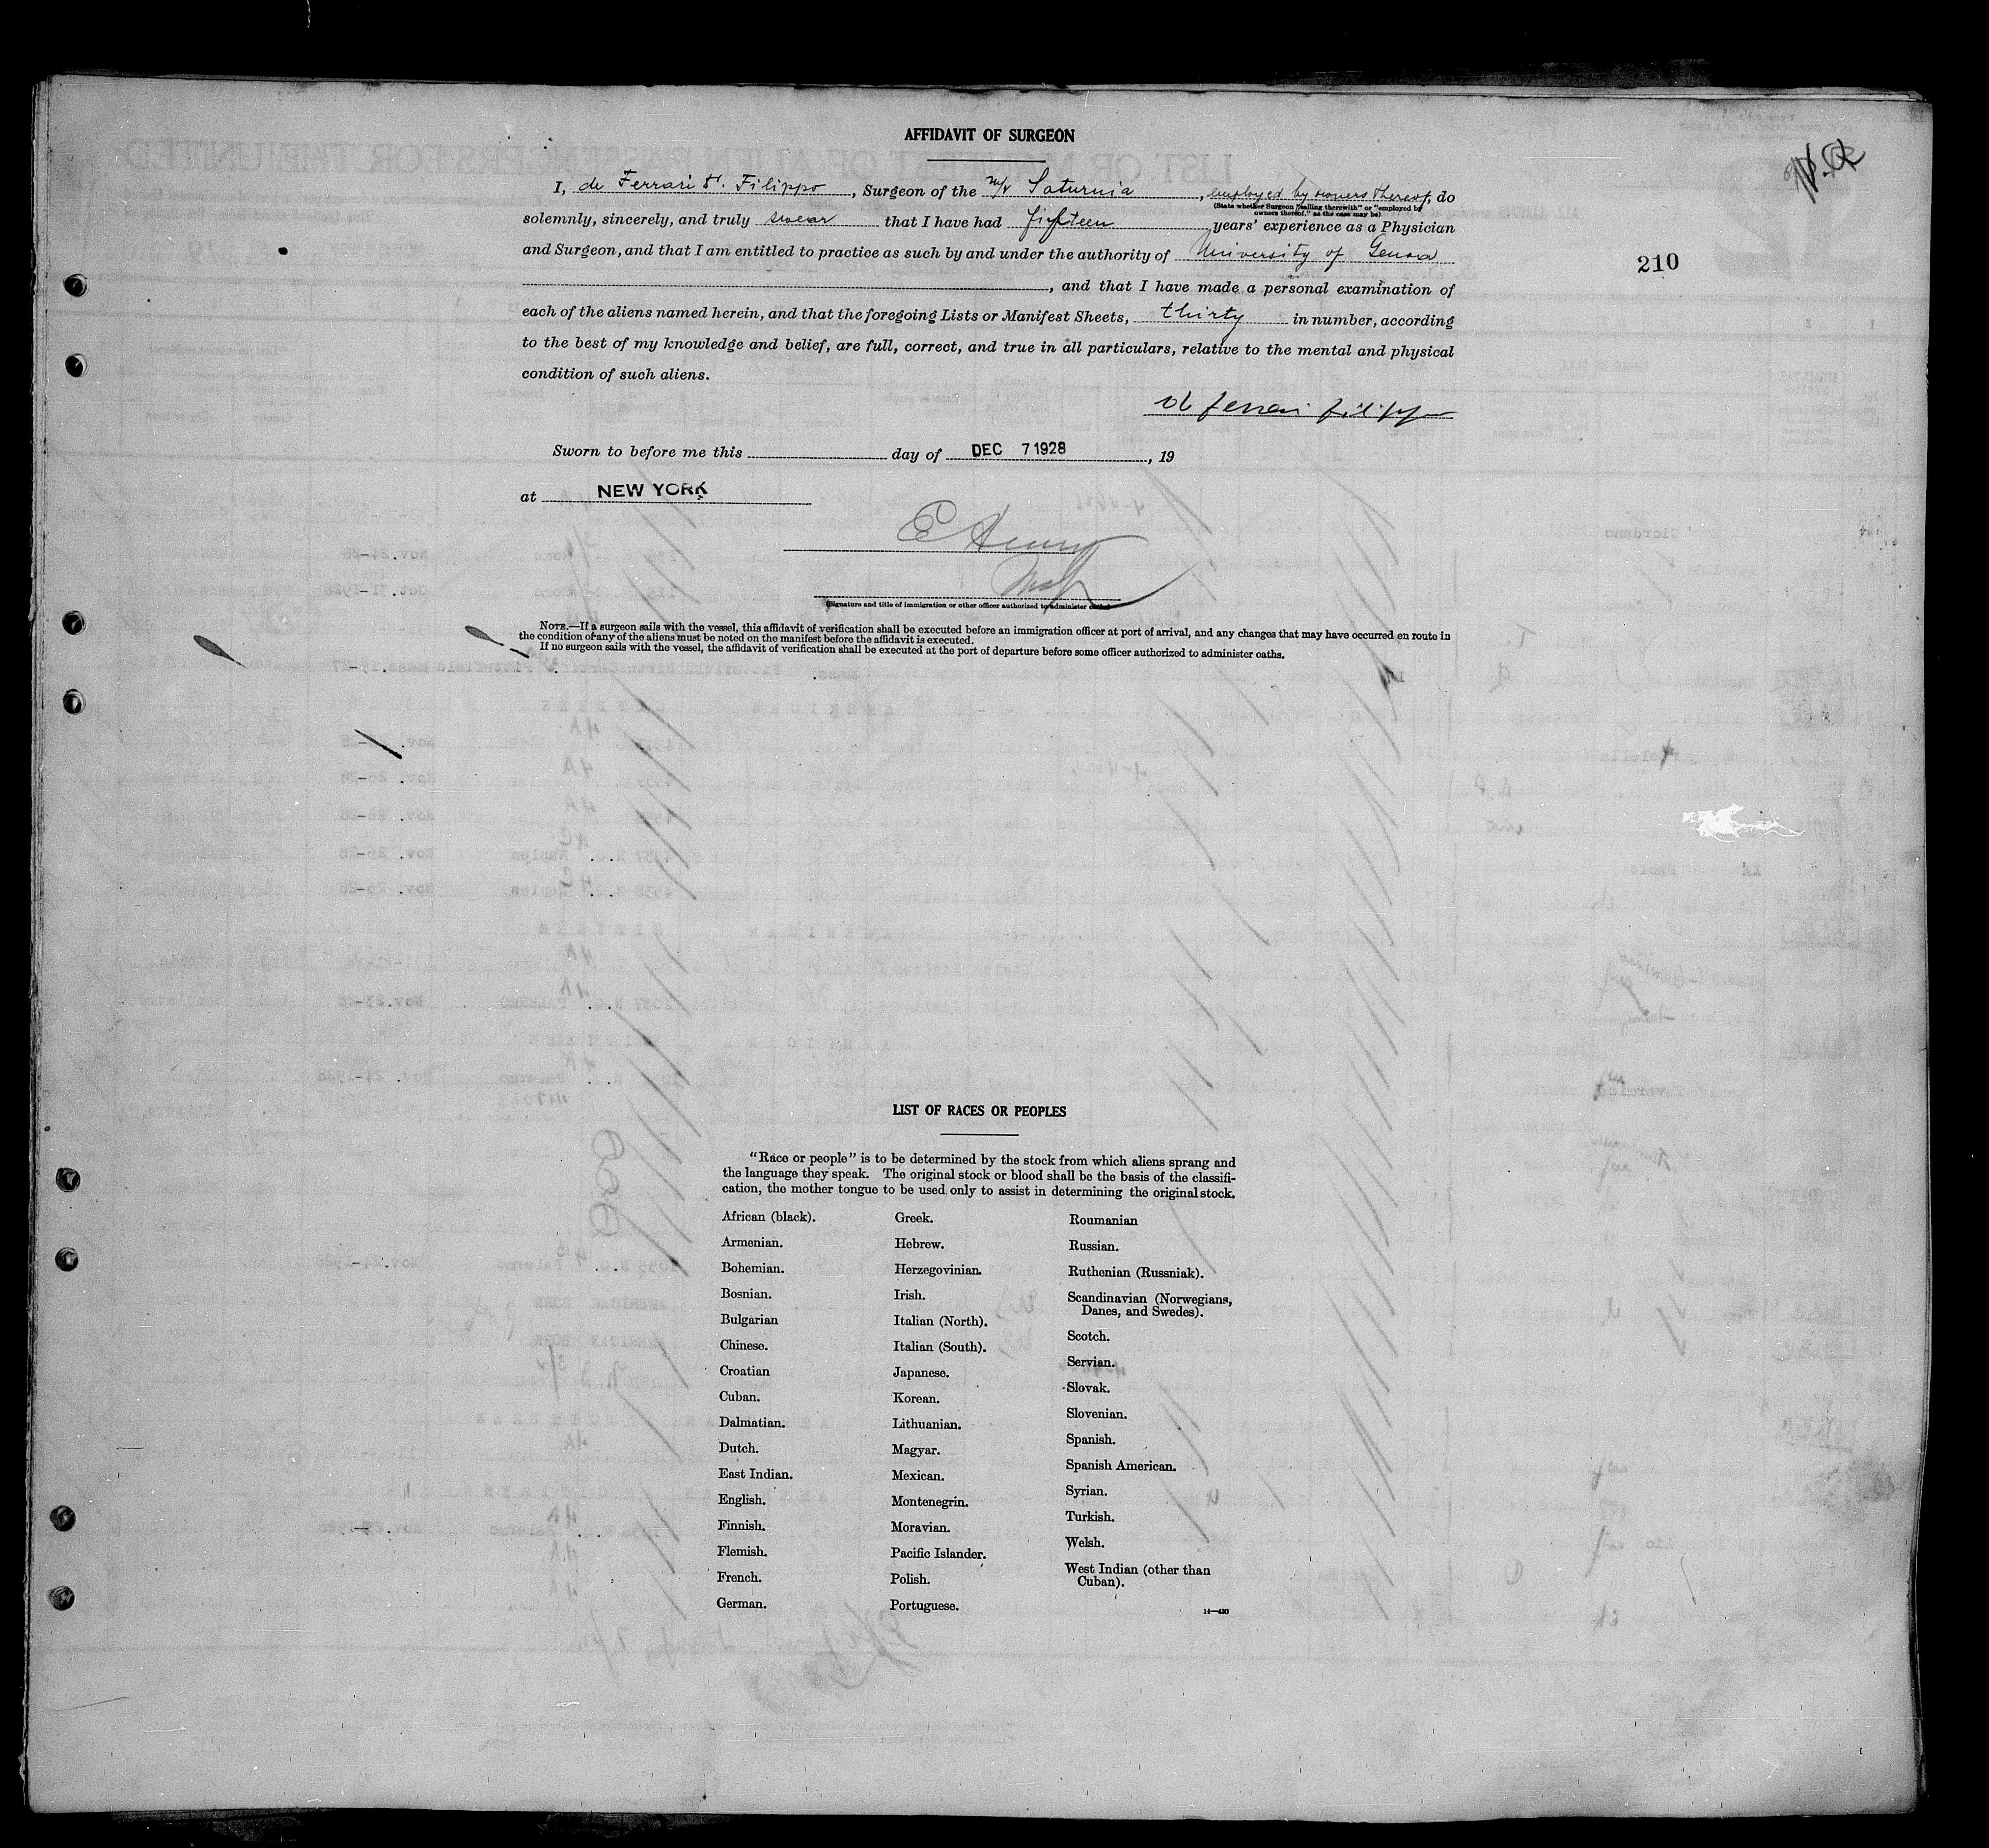 AFFIDAVIT OF SURGEON
I, de Ferrari Dr. Filippo, Surgeon of the M/V Saturnia, employed by owners thereof, do
(State whether Surgeon "sailing therewith" or "employed by
owners thereof," as the case may be)
solemnly, sincerely, and truly swear that I have had fifteen years' experience as a Physician
and Surgeon, and that I am entitled to practice as such by and under the authority of University of Genova
210
, and that I have made a personal examination of
each of the aliens named herein, and that the foregoing Lists or Manifest Sheets, thirty in number, according
to the best of my knowledge and belief, are full, correct, and true in all particulars, relative to the mental and physical
condition of such aliens.
de Ferrari Filippo
Sworn to before me this day of DEC 7 1928, 19
at NEW YORK
(Signature and title of immigration or other officer authorized to administer oaths)
NOTE.—If a surgeon sails with the vessel, this affidavit of verification shall be executed before an immigration officer at port of arrival, and any changes that may have occurred en route in
the condition of any of the aliens must be noted on the manifest before the affidavit is executed.
If no surgeon sails with the vessel, the affidavit of verification shall be executed at the port of departure before some officer authorized to administer oaths.
LIST OF RACES OR PEOPLES
"Race or people" is to be determined by the stock from which aliens sprang and
the language they speak. The original stock or blood shall be the basis of the classifi-
cation, the mother tongue to be used only to assist in determining the original stock.
African (black).
Armenian.
Bohemian.
Bosnian.
Bulgarian
Chinese.
Croatian
Cuban.
Dalmatian.
Dutch.
East Indian.
English.
Finnish.
Flemish.
French.
German.
Greek.
Hebrew.
Herzegovinian.
Irish.
Italian (North).
Italian (South).
Japanese.
Korean.
Lithuanian.
Magyar.
Mexican.
Montenegrin.
Moravian.
Pacific Islander.
Polish.
Portuguese.
Roumanian
Russian.
Ruthenian (Russniak).
Scandinavian (Norwegians,
Danes, and Swedes).
Scotch.
Servian.
Slovak.
Slovenian.
Spanish.
Spanish American.
Syrian.
Turkish.
Welsh.
West Indian (other than
Cuban).
14—430